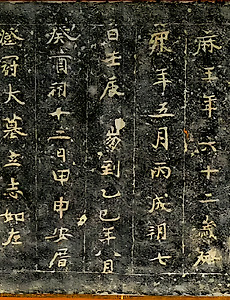 麻王年六十二歲 
年五月丙戌朔七
日壬辰 到乙巳年八月
癸酉朔十二日甲申安厝
登冠大墓立志如左